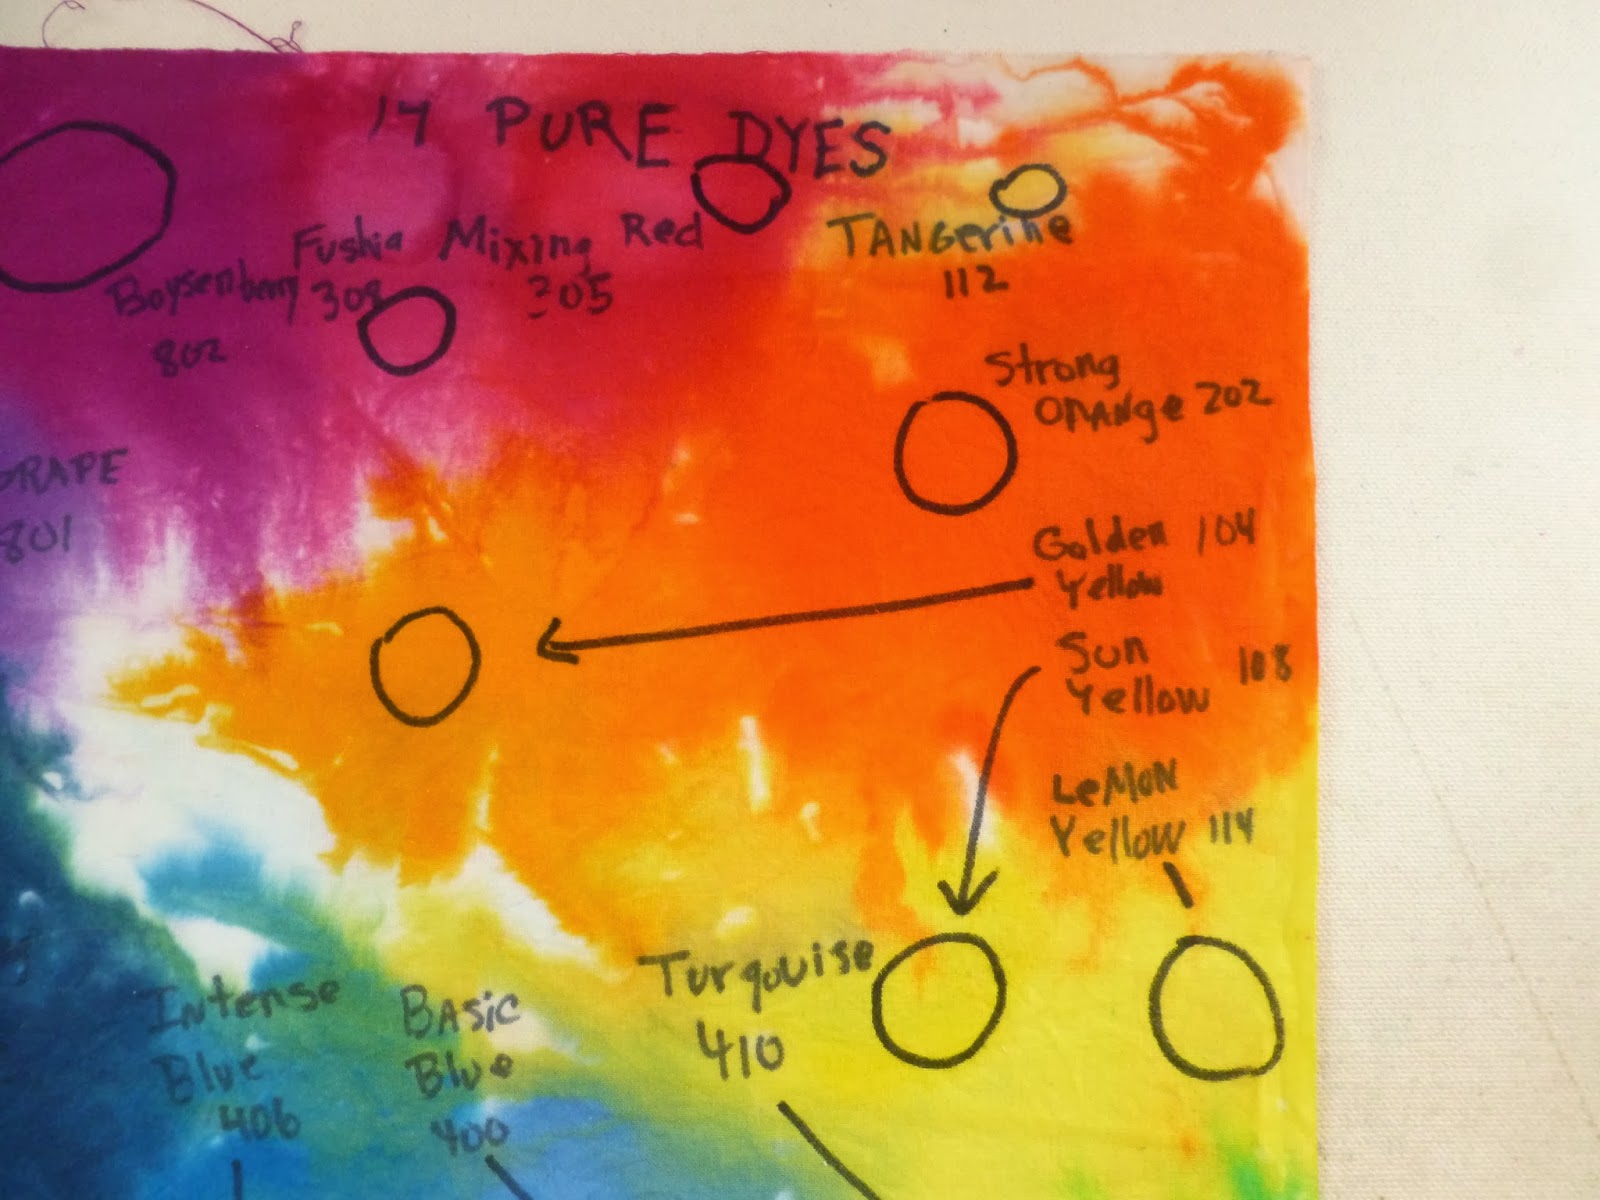 14 PURE DYES
Fushia
308
Mixing Red
305
TANGerine
112
Boysenberry
802
Strong
ORANge 202
GRAPE
801
Golden 104
Yellow
Sun 108
Yellow
LeMON
Yellow 114
Turqouise
410
Intense
Blue
406
BASic
Blue
400